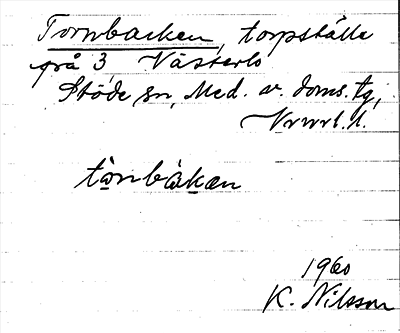 Tornbacken, torpställe
på 3, Västerlo
Stöde sn, Med. v. doms. tg,
Vrnrl. l.
tånbàkan
1960
K. Nilsson